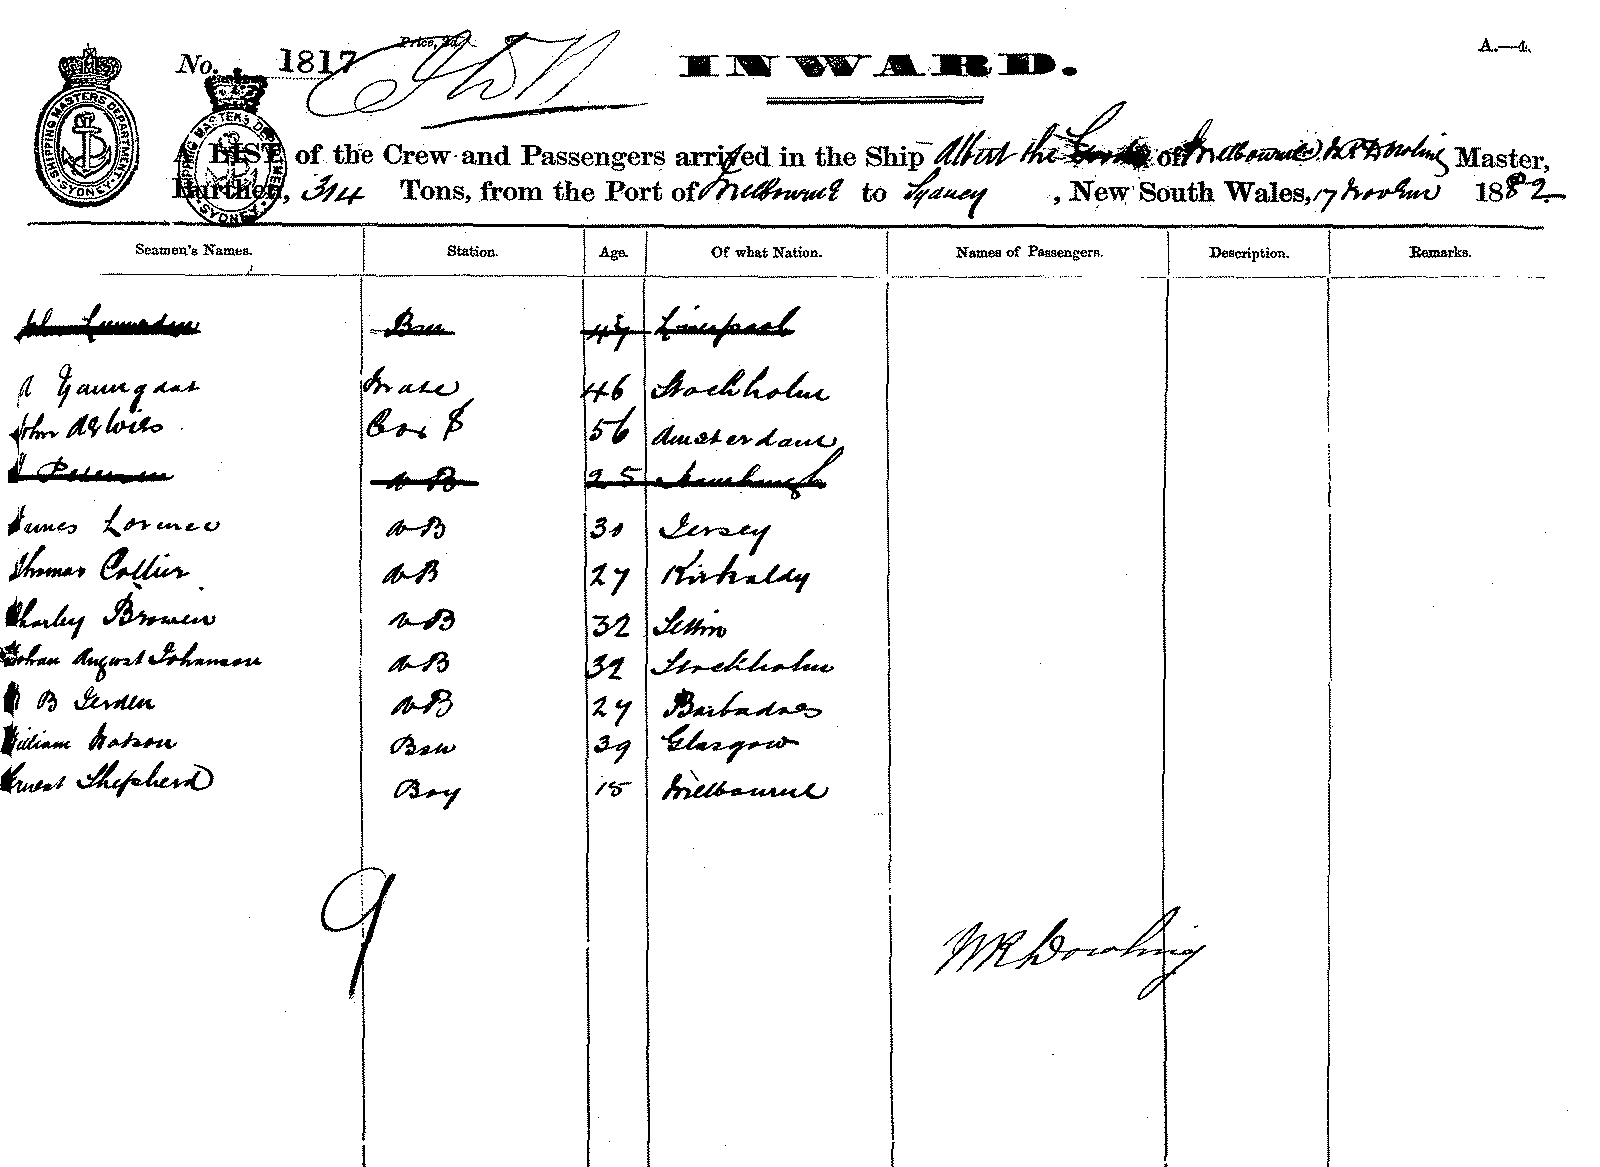 A.—4.
No. 1817
INWARD.
SHIPPING MASTERS DEPARTMENT SYDNEY
SHIPPING MASTERS DEPARTMENT SYDNEY
A LIST of the Crew and Passengers arrived in the Ship Albert the of Melbourne W R Dowling Master,
Burthen, 314 Tons, from the Port of Melbourne to Sydney, New South Wales, 17 Novbr 1882
Seamen's Names. Station. Age. Of what Nation. Names of Passengers. Description. Remarks.
John Lumsden Bsn 47 Liverpool
A Mate 46 Stockholm
John 56 Amsterdam
Petersen AB 25 Hamburgh
James AB 30 Jersey
Thomas Collier AB 27 Kirkaldy
Charley Browen AB 32 Settin
Johan August Johanson AB 32 Stockholm
B Jerden AB 27 Barbadoes
William Watson Bsn 39 Glasgow
Ernest Shepherd Boy 15 Melbourne
9
W R Dowling